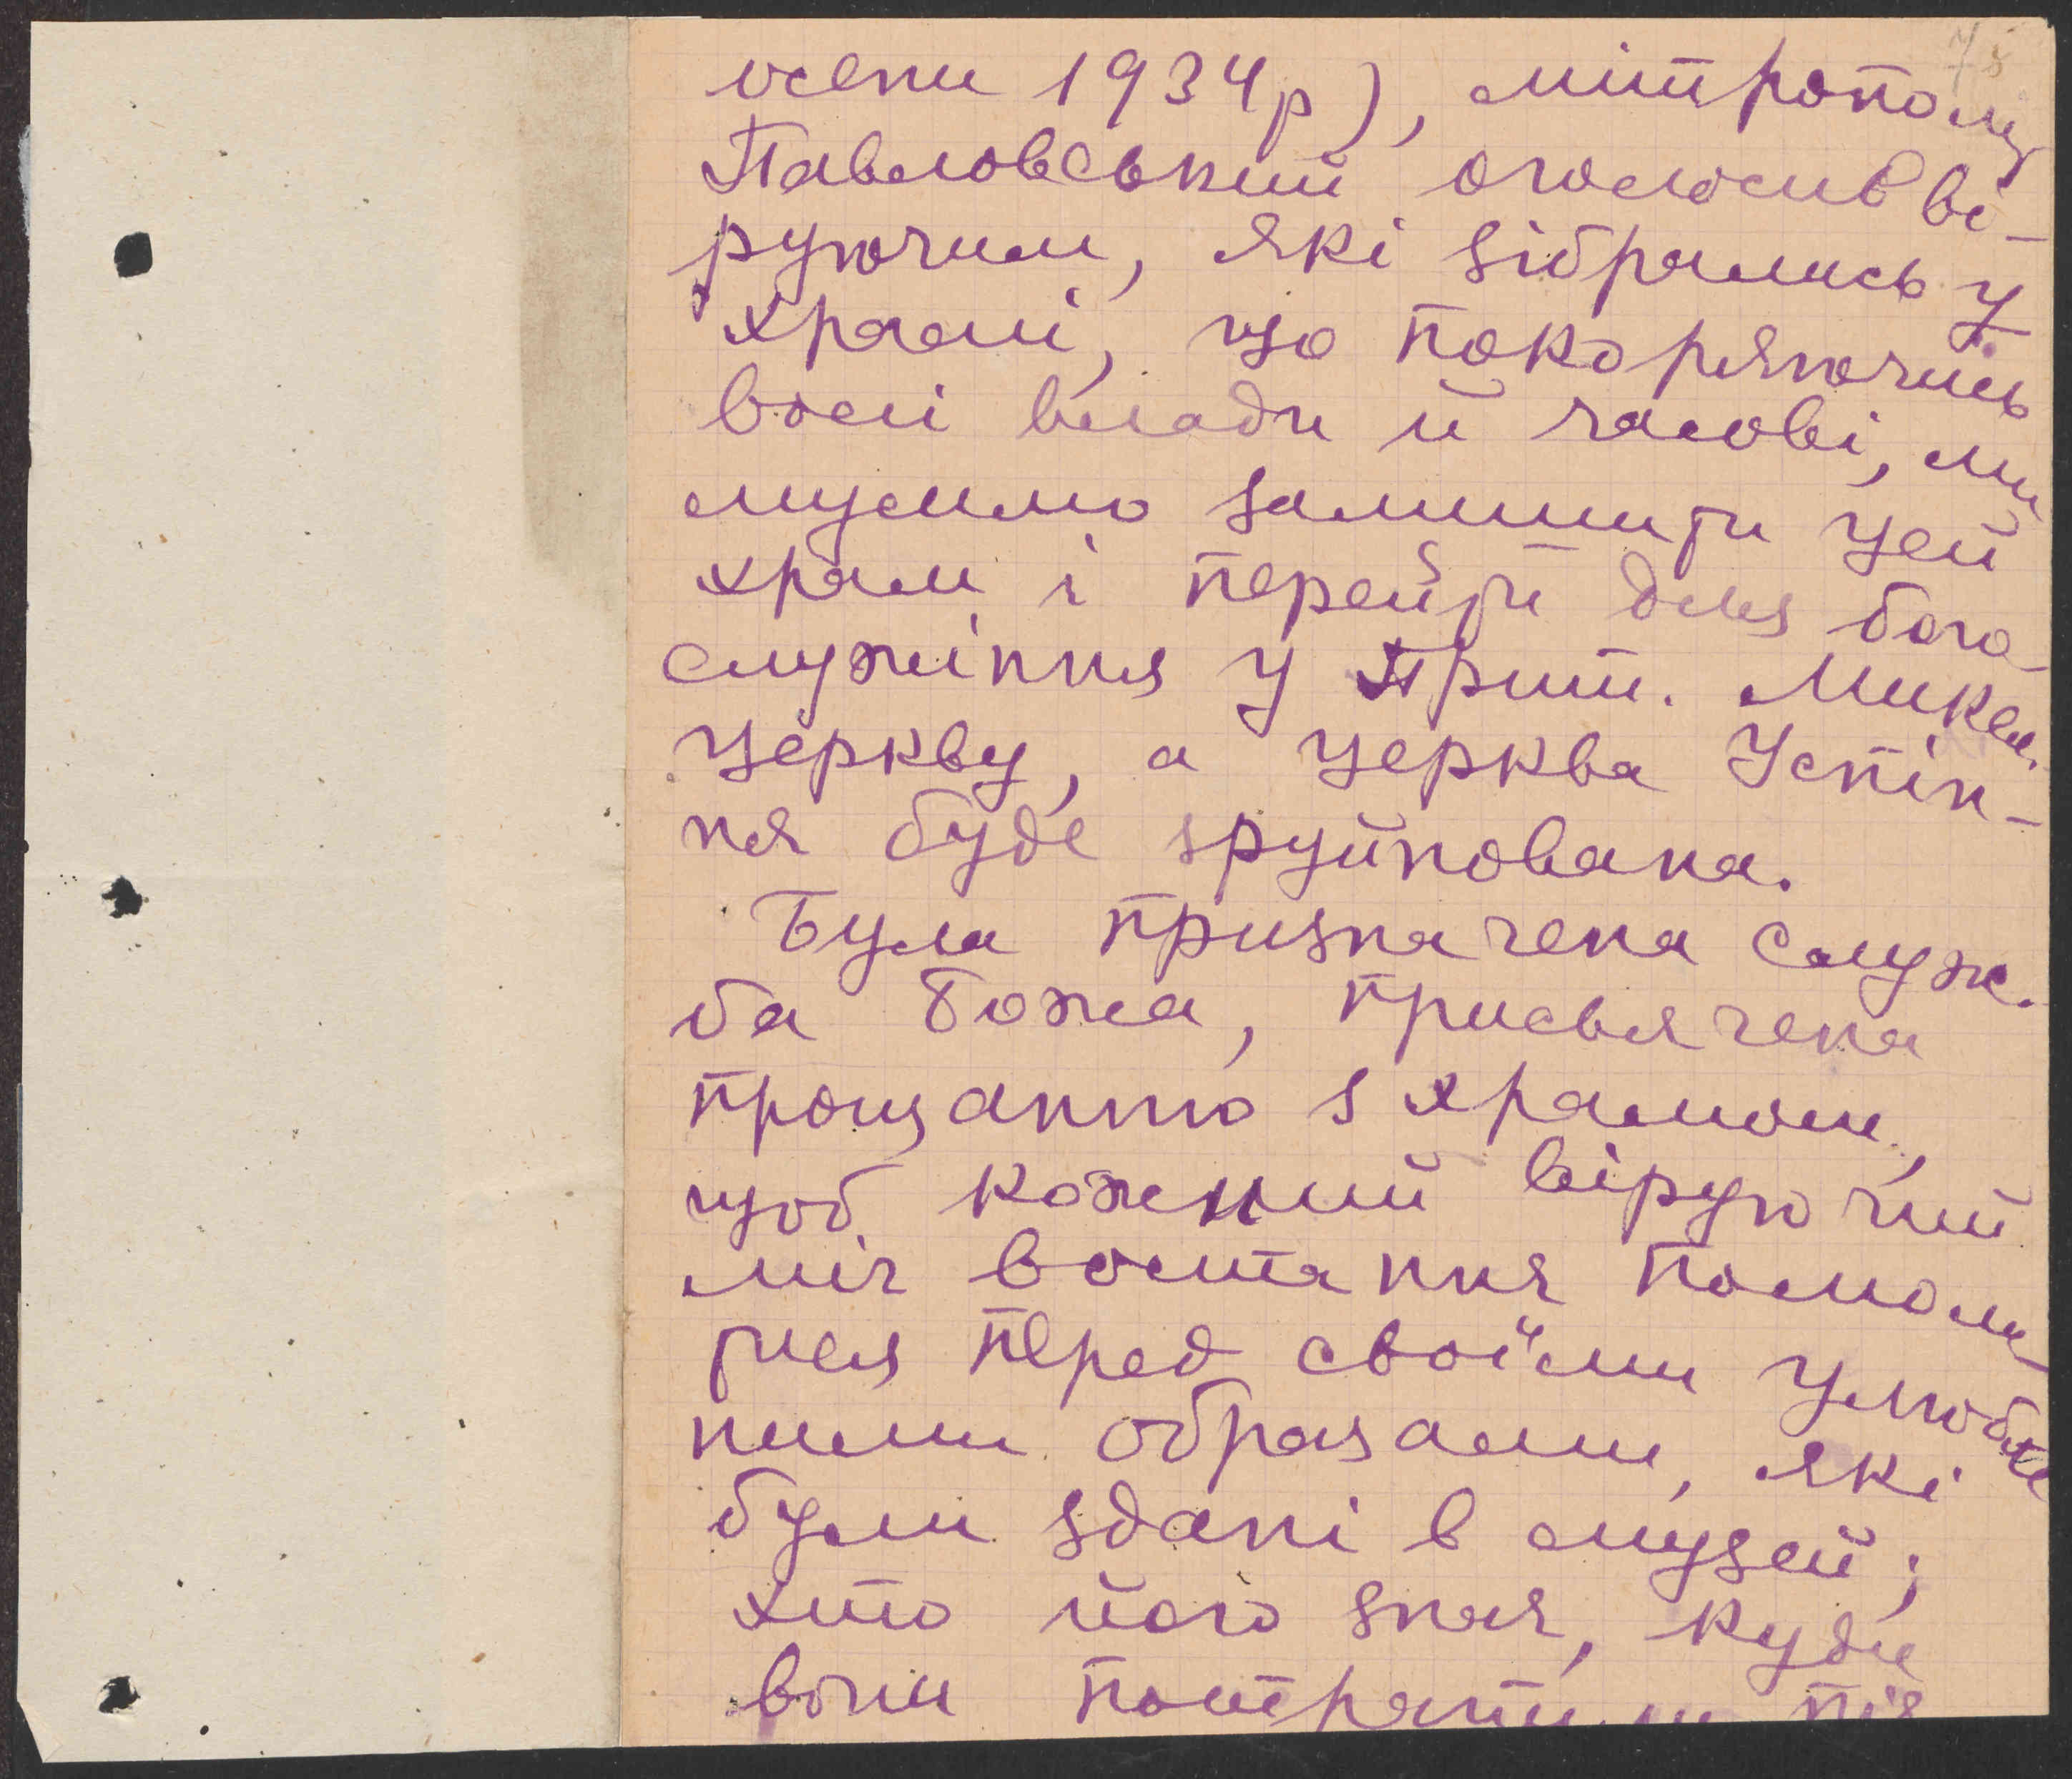 75
осени 1934р), мітрополи
Павловський оголосив ві-
руючим, які зібрались у
храмі, що покоряючись
волі влади й часові, ми
мусимо залишити цей
храм і перейти для бого-
служіння у Прит. Микол.
церкву, а церква Успін-
ня буде зруйнована.
Була призначена служ-
ба Божа, присвячена
прощанню з храмом,
щоб кожний віруючий
міг востаннє помоли-
тися перед своїми улюбле
ними образами, які
були здані в музей;
хто його зная, куди
вони потрапили